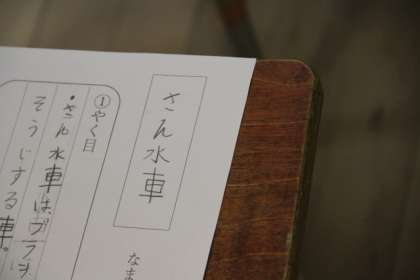 さん水車
なま
①やく目
・さん水車はブラ
そうじする車。